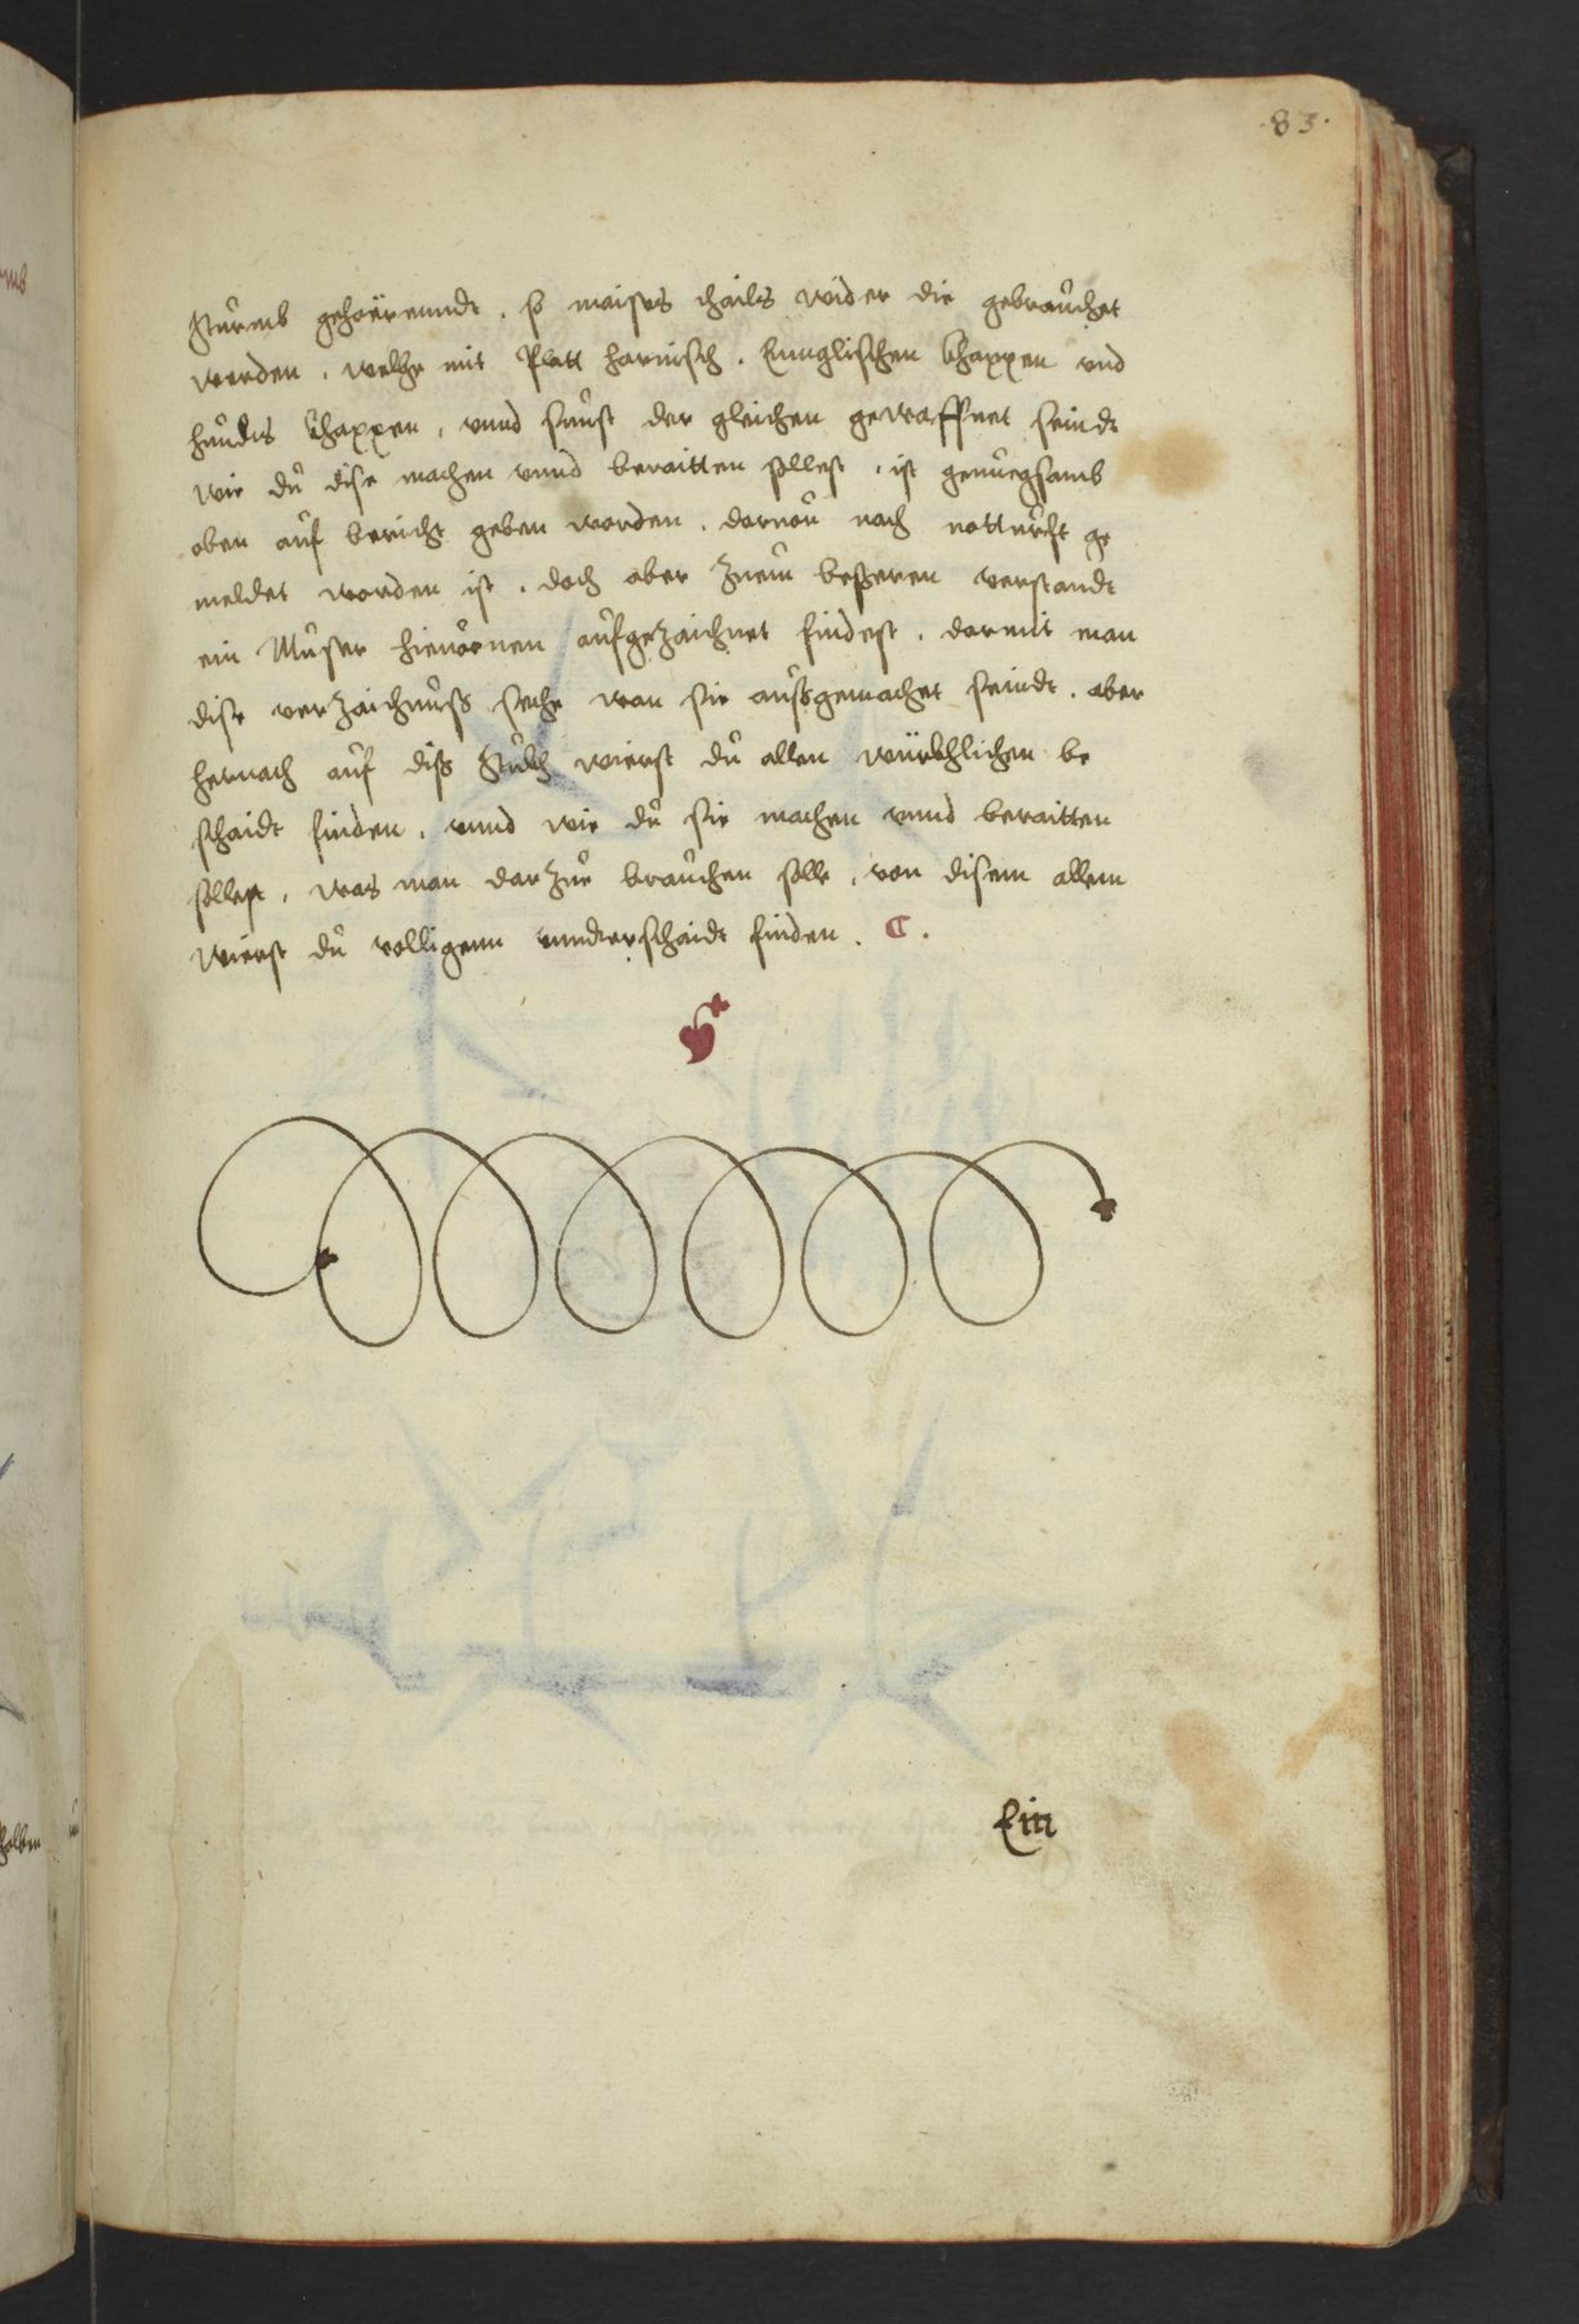 .83.
Sturmb gehörenndt, so maistes thails wider die gebrauchet
werden, welhe mit Platt harnisch, Ennglischen Khappen und
hundts Khappen, vnnd sunst der gleichen gewaffnet seindt
wie du dise machen vnnd beraitten sollest, ist genuegsamb
oben auf bericht geben worden, daruon nach notturfft ge
meldet worden ist, doch aber zuem besseren verstandt
ein Muster hieuornen aufgezaichnet findest, darmit man
dise verzaichnuss sehe wan sie aussgemachet seindt, aber
hernach auf diss Stukh wierst du allen würkhlichen be
schaidt finden, vnnd wie du sie machen vnnd beraitten
sollest, was man darzue brauchen solle, von disem allem
wierst du volligenn vnnderschaidt finden.
Ein